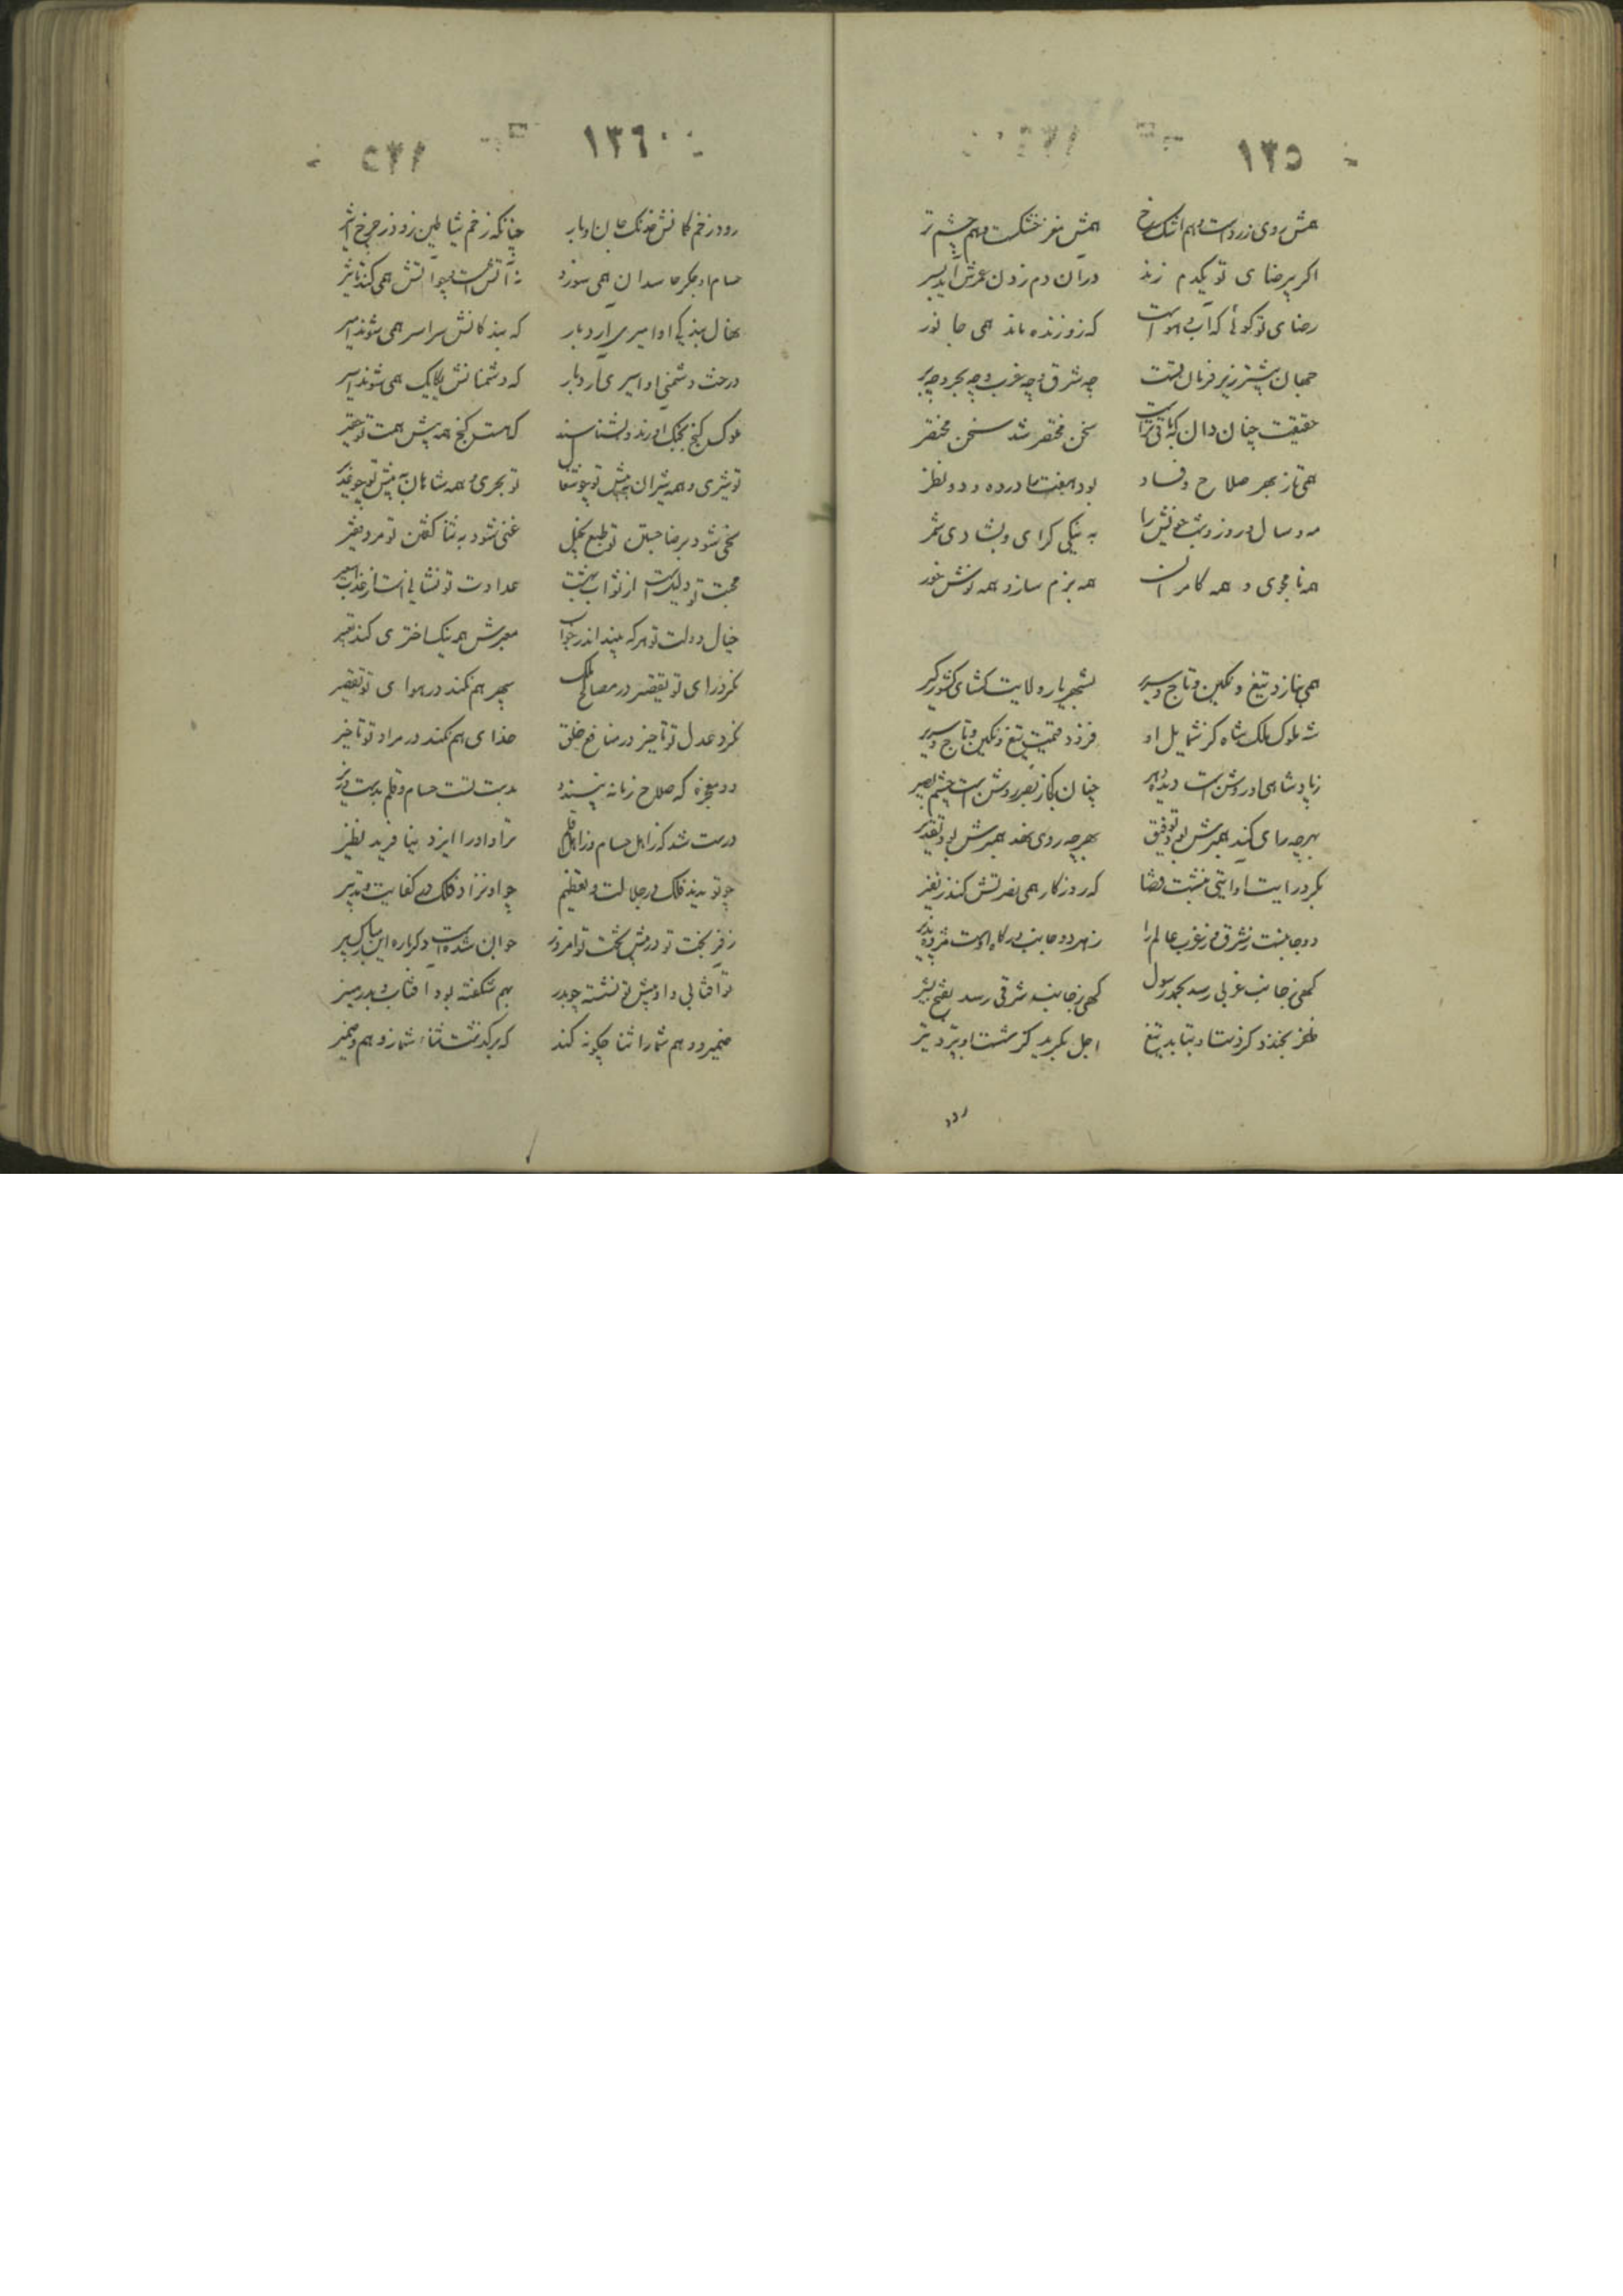 ١٣٥
همش روی زردست و هم اشک سرخ همش مغز خشکست و هم چشم تر
اکر بیرضای تو یکدم زند در آن دم زدن عمرش آید بسر
رضای تو کوئی که آب و هواست که زو زنده ماند همی جانور
جهان بیشتر زیر فرمان تست چه شرق و چه غرب و چه بحر و چه بر
حقیقت چنان دان که باقی تراست سخن مختصر شد سخن مختصر
همی تا ز بهر صلاح و فساد بود هفت مادر ده و دو نظر
مه و سال و روز و شب خویش را به نیکی کرای و بشادی شمر
همه نامجوی و همه کامران همه بزم ساز و همه نوش خور
همی بنازد تیغ و نکین و تاج و سریر بشهریار ولایت کشای کشور کیر
شه ملوک ملکشاه کز شمایل او فزود قیمت تیغ و نکین و تاج و سریر
ز پادشاهی او روشن است دیده دهر چنان کجا ز بصر روشن است چشم بصیر
بهرچه رای کند همبرش بود توفیق بهرچه روی نهد همبرش بود تقدیر
بکرد رایت او آیتی نبشت قضا که روزکار همی نصرتش کند تفسیر
دو جانبست ز شرق و ز غرب عالم را ز هر دو جانب درکاه اوست مژده پذیر
کهی ز جانب غربی رسد بحمد رسول کهی ز جانب شرقی رسد بفتح بشیر
ظفر بخندد کز دست او بتابد تیغ اجل بکرید کز شست او بپرد تیر
رود
١٣٦
رود ز زخم کمانش خدنک جان اوبار چنانکه زخم شیاطین رود ز چرخ اثیر
حسام او جکر حاسدان همی سوزد نه آتش است و چو آتش همی کند تاثیر
نهال بندکی او امیری آرد بار که بندکانش سراسر همی شوند امیر
درخت دشمنی او اسیری آرد بار که دشمنانش یکایک همی شوند اسیر
ملوک کنج بچنک آورند و نشناسند که هست کنج همه پیش همت تو حقیر
تو شیری و همه شیران به پیش تو چو شغال تو بحری و همه شاهان به پیش تو چو غدیر
سخی شود برضا جستن تو طبع بخیل غنی شود به ثنا کفتن تو مرد فقیر
محبت تو دلیلست از ثواب بهشت عداوت تو نشانی است از عذاب سعیر
خیال دولت تو هر که بیند اندر خواب معبرش همه نیک اختری کند تعبیر
نکرد رای تو تقصیر در مصالح ملک سپهر هم نکند در هوای تو تقصیر
نکرد عدل تو تاخیر در منافع خلق خدای هم نکند در مراد تو تاخیر
دو معجزه که صلاح زمانه پسندد بدست تست حسام و قلم بدست وزیر
درست شد که ز اهل حسام و ز اهل قلم ترا و او را ایزد نیافرید نظیر
چو تو ندید فلک در جلالت و تعظیم چو او نزاد فلک در کفایت و تدبیر
ز فر بخت تو در پیش تخت تو امروز جوان شده است دکرباره این مبارک پیر
تو آفتابی و او پیش تو نشسته چو بدر بهم شکفته بود آفتاب و بدر منیر
ضمیر و وهم شما را ثنا چکونه کند که برکذشت ثناء شما ز وهم و ضمیر